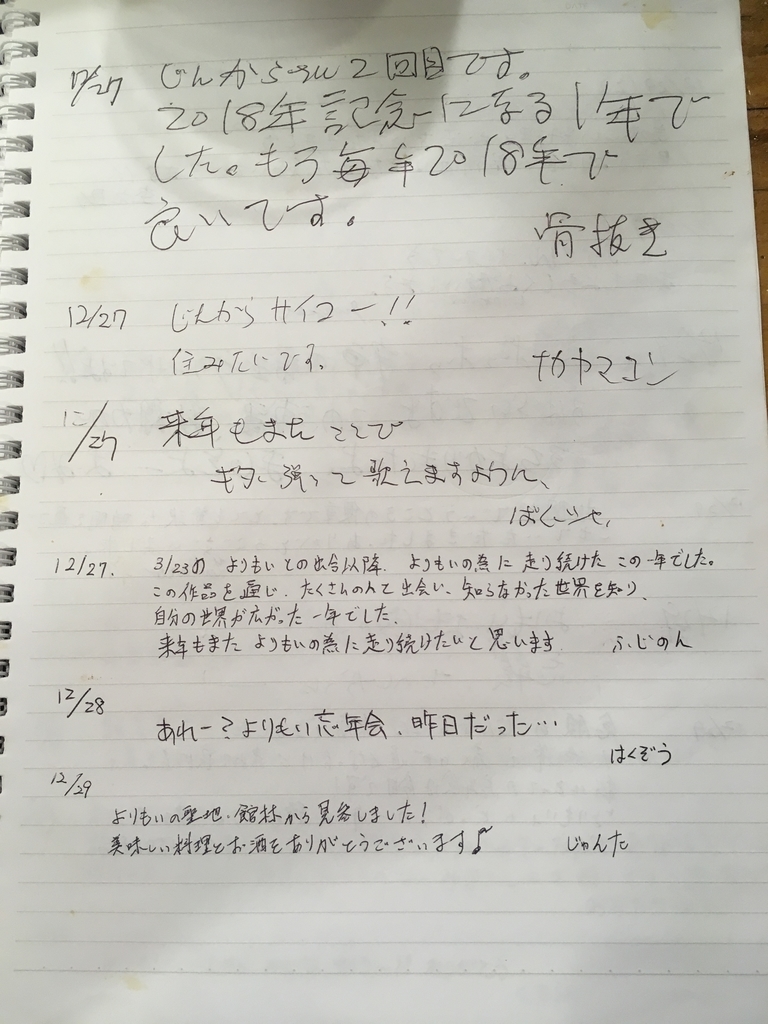 12/27 じんからえん2回目です。
2018年記念になる1年で
した。もう毎年2018年で
良いです。
骨抜き
12/27 じんからサイコー!!
住みたいです。
ナカヤマコン
12/27 来年もまたここで
ギター弾いて歌えますように、
12/27. 3/23の よりもいとの出会以降、よりもいの為に走り続けたこの一年でした。
この作品を通じ、たくさんの人と出会い、知らなかった世界を知り、
自分の世界が広がった一年でした。
来年もまたよりもいの為に走り続けたいと思います ふじのん
12/28
あれー?よりもい忘年会、昨日だった…
はくぞう
12/29
よりもいの聖地・館林から見参しました!
美味しい料理とお酒をありがとうございます♪ じゅんた